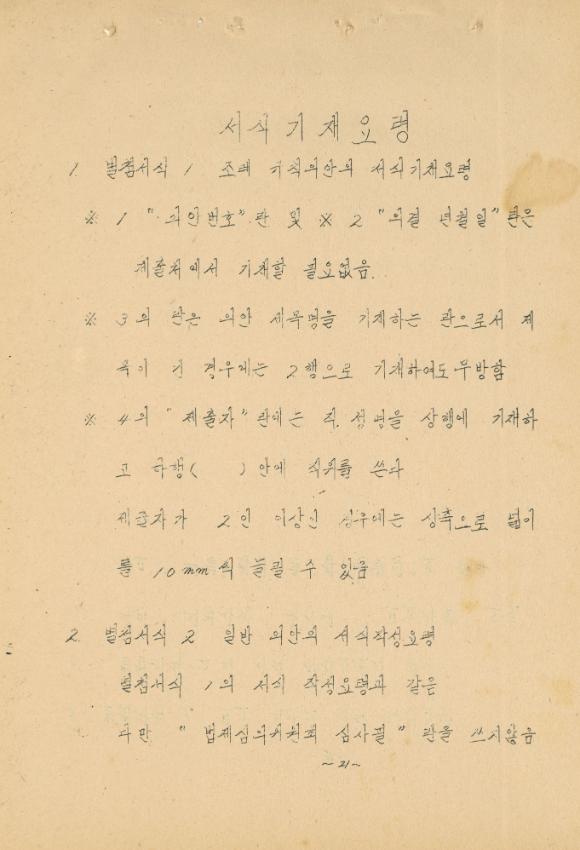 서식기재요령
1. 별첨서식 1 조례 규칙의안의 서식기재요령
※ 1 "의안번호"란 및 ※ 2 "의결 년월일"란은
제출처에서 기재할 필요없음.
※ 3의 란은 의안 제목명을 기재하는 란으로서 제
목이 긴 경우에는 2행으로 기재하여도무방함
※ 4의 "제출자"란에는 직. 성명을 상행에 기재하
고 하행( )안에 직위를 쓴다
제출자가 2인 이상인 경우에는 상측으로 넓이
를 10mm씩 늘릴 수 있음
2. 별첨서식 2 일반 의안의 서식작성요령
별첨서식 1의 서식 작성요령과 같음
다만 "법제심의위원회 심사필" 란을 쓰지않음
~21~